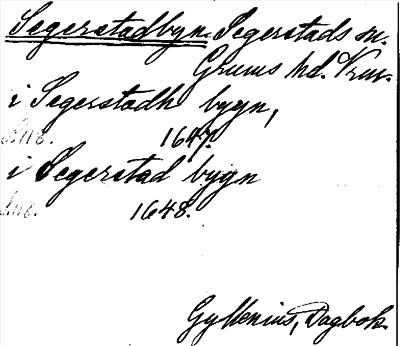 Segerstadbyn. Segerstads sn.
Grums hd. Vrml.
i Segerstadh bygn,
1647.
i Segerstad bygn
1648.
Gyllenius, Dagbok.